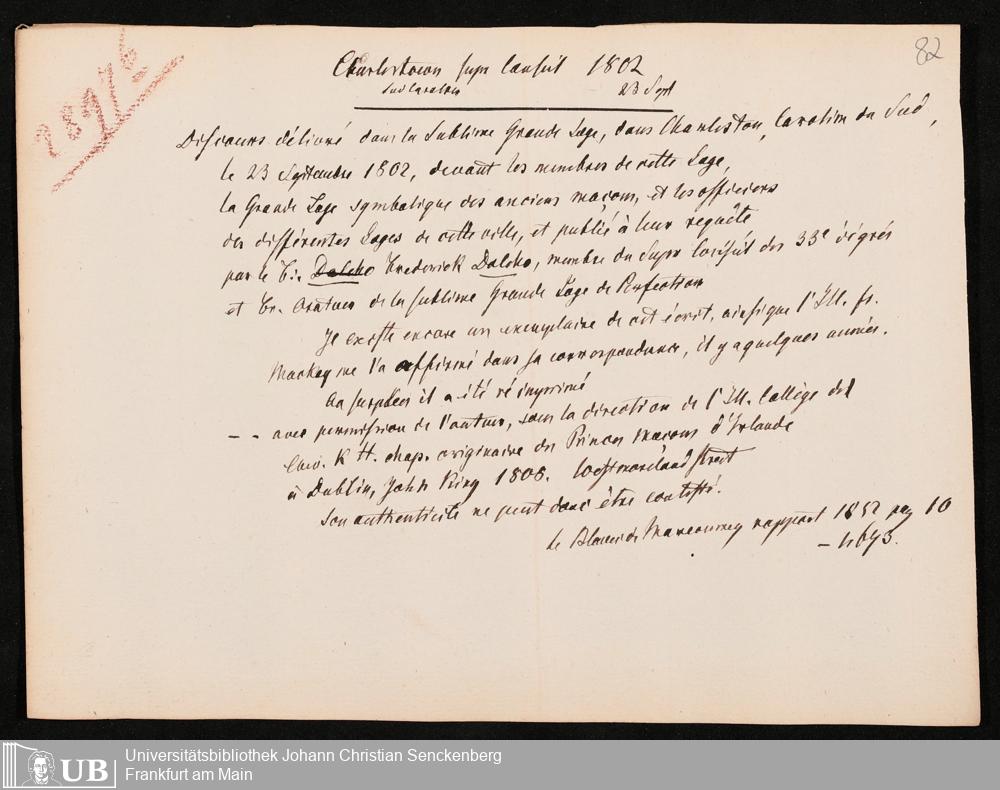 82
Charlestown supr Conseil 1802
Sud Carolin 23 Sept
Discours délivré dans la Sublime Grande Loge, dans Charleston, Caroline du Sud,
le 23 Septembre 1802, devant les membres de cette Loge,
la Grande Loge symbolique des anciens maçons, et les officiers
des différentes Loges de cette ville, et publié à leur requête
par le Fr. Dalcho Frederick Dalcho, membre du Supr Conseil des 33e dégrés
et Gr. Orateur de la sublime Grande Loge de Perfection
Je existe encore un exemplaire de cet écrit, ainsi que l'Ill. fr.
Mackey me l'a affirmé dans sa correspondance, il y a quelques années.
Au surplus il a été réimprimé
– – avec permission de l'auteur, sous la direction de l'Ill. Collège des
Chev. K H. chap. originaire des Princes Macons d'Irlande
à Dublin, John King 1808. Westmoreland street
Son authenticité ne peut donc être contesté.
le Blanc de Marconnay rapport 1852 pag 10
Universitätsbibliothek Johann Christian Senckenberg
UB Frankfurt am Main